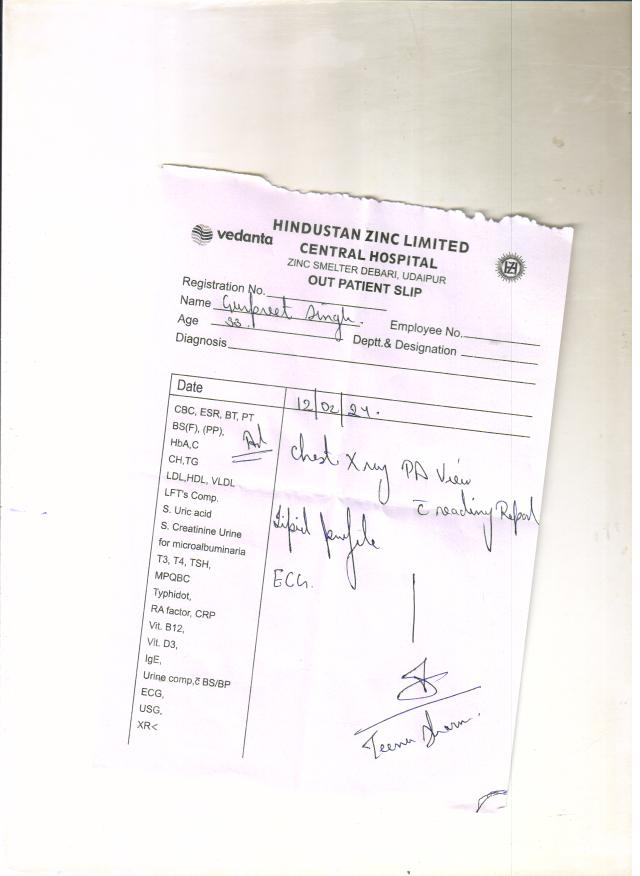 vedanta
HINDUSTAN ZINC LIMITED
CENTRAL HOSPITAL
ZINC SMELTER DEBARI, UDAIPUR
OUT PATIENT SLIP
Registration No.
Name Gurpreet Singh. Employee No.
Age 33. Deptt.& Designation
Diagnosis
Date 12/02/24.
CBC, ESR, BT, PT
BS(F), (PP),
HbA,C
CH,TG
LDL,HDL, VLDL
LFT's Comp.
S. Uric acid
S. Creatinine Urine
for microalbuminaria
T3, T4, TSH,
MPQBC
Typhidot,
RA factor, CRP
Vit. B12,
Vit. D3,
IgE,
Urine comp,c̄ BS/BP
ECG,
USG,
XR<
Chest X ray PA View
c̄ reading Report
Lipid profile
ECG.
Teena